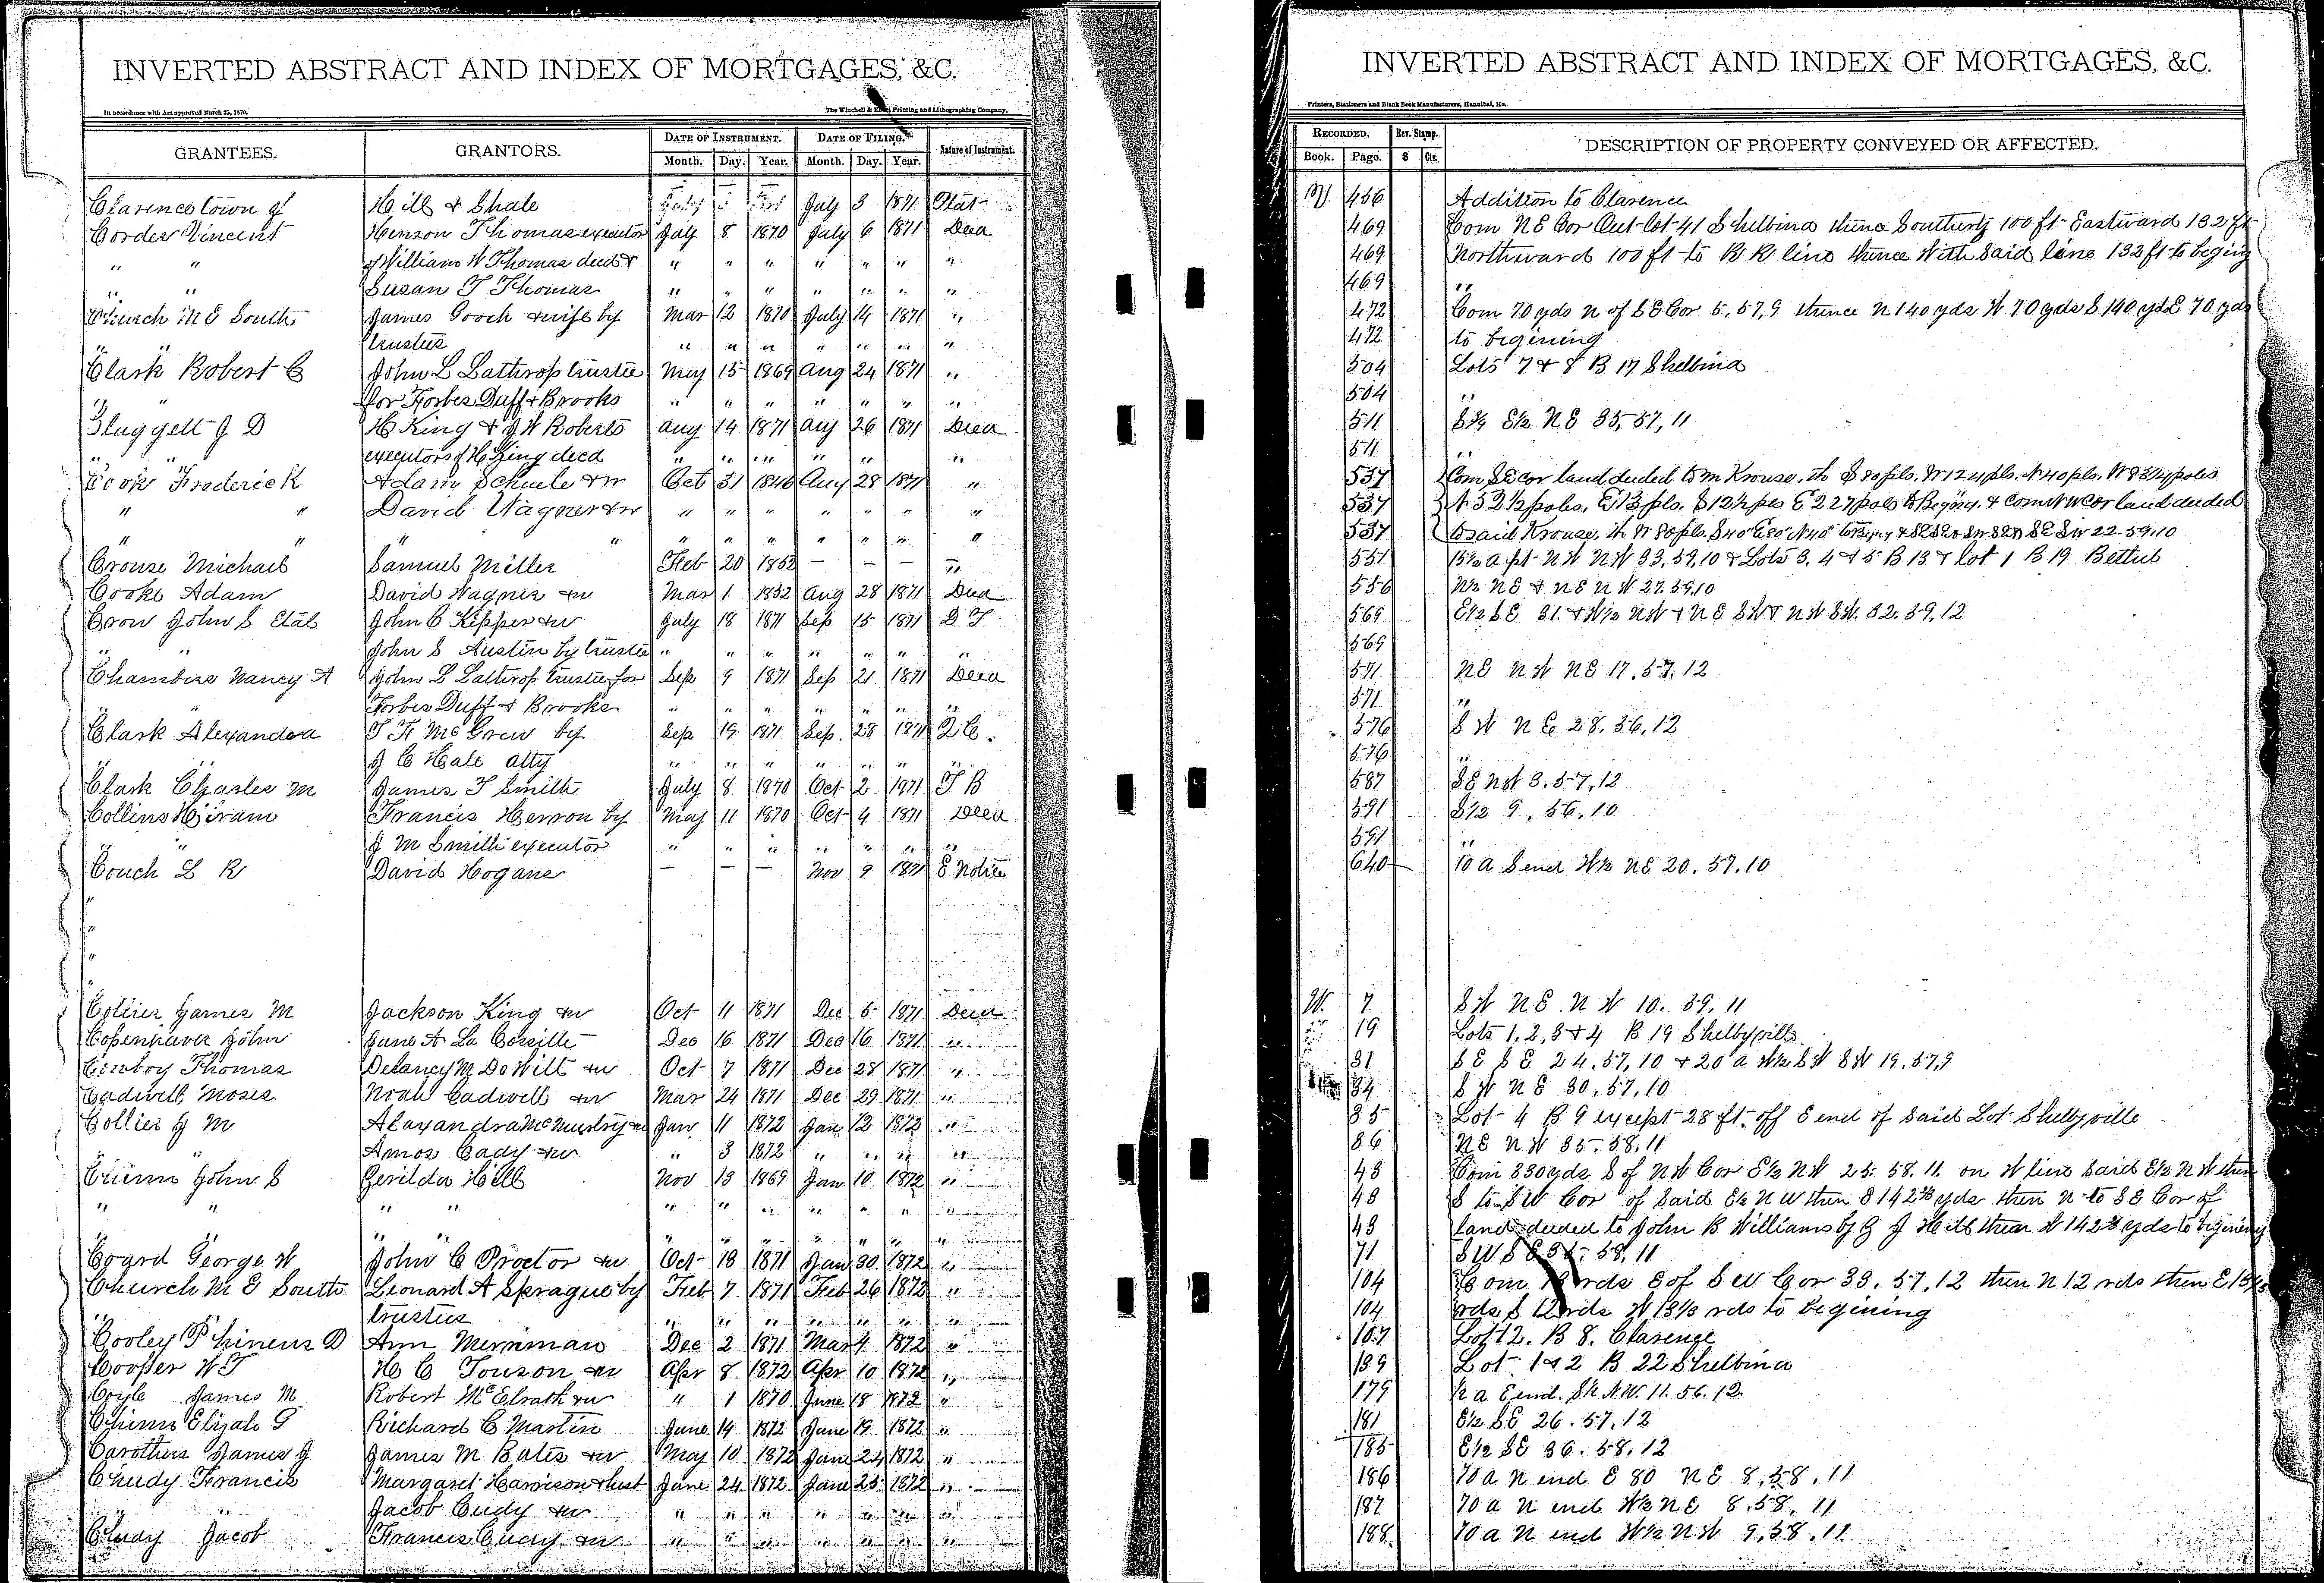 INVERTED ABSTRACT AND INDEX OF MORTGAGES, &C.
In accordance with Act approved March 25, 1870.
The Winchell & Printing and Lithographing Company,
GRANTEES. GRANTORS. DATE OF INSTRUMENT. DATE OF FILING. Nature of Instrument.
Month. Day. Year. Month. Day. Year.
Clarence town of Hill & Shale July 3 1871 Plat
Cordes Vincent Henson Thomas executor July 8 1870 July 6 1871 Deed
" " of William W Thomas decd & " " " " " " "
" " Susan T Thomas " " " " " " "
Church M E South James Gooch & wife by Mar 12 1870 July 14 1871 "
" trustee " " " " " " "
Clark Robert C John L Lathrop trustee May 15 1869 Aug 24 1871 "
" " for Forbes Duff & Brooks " " " " " " "
Claggett J D H King & J W Roberts Aug 14 1871 Aug 26 1871 Deed
" " executors of H King decd " " " " " " "
Cook Frederick Adam Schuele & w Oct 31 1846 Aug 28 1871 "
" " David Wagner & w " " " " " " "
" " " " " " " " " "
Crouse Michael Samuel Miller Feb 20 1852 — — — "
Cooke Adam David Wagner & w Mar 1 1852 Aug 28 1871 Deed
Crow John S Etal John C Kipper & w July 18 1871 Sep 15 1871 D T
" " John S Austin by trustee " " " " " " "
Chambers Nancy A John L Lathrop trustee for Sep 9 1871 Sep 21 1871 Deed
" Forbes Duff & Brooks " " " " " " "
Clark Alexandra T F McCrew by Sep 19 1871 Sep 28 1871 Q C.
" J C Hale atty " " " " " "
Clark Charles M James T Smith July 8 1870 Oct 2 1871 T B
Collins Hiram Francis Herron by May 11 1870 Oct 4 1871 Deed
" J M Smith executor " " " " " " "
Couch L R David Hogans — — — Nov 9 1871 E Notice
Collier James M Jackson King & w Oct 11 1871 Dec 5 1871 Deed
Copenhaver John Jane A La Cossitt Dec 16 1871 Dec 16 1871 "
Thomas Delancy M DeWitt & w Oct 7 1871 Dec 28 1871 "
Cadwell Moses Noah Cadwell & w Mar 24 1871 Dec 29 1871 "
Collier J M Alaxandra McMurtry & w Jan 11 1872 Jan 12 1872 "
" Amos Cady & w " 3 1872 " " " "
John S Gerilda Hill Nov 13 1869 Jan 10 1872 "
" " " " " " " " " " "
" " " " " " " " "
Coard George W John C Proctor & w Oct 18 1871 Jan 30 1872 "
Church M E South Leonard A Sprague by Feb 7 1871 Feb 26 1872 "
" trustees " " " " " " "
Cooley Phineus D Ann Merriman Dec 2 1871 Mar 4 1872 "
Cooper W T H C Touson & w Apr 8 1872 Apr 10 1872 "
Coyle James M. Robert McElrath & w " 1 1870 June 18 1872 "
Chinn Elijah G Richard C Martin June 14 1872 June 19 1872 "
Carothers James J James M Bates & w May 10 1872 June 24 1872 "
Chudy Francis Margaret Harrison & hust June 24 1872 June 25 1872 "
" Jacob Cudy & w " " " " " " "
Chudy Jacob Francis Cudy & w " " " " " " "
INVERTED ABSTRACT AND INDEX OF MORTGAGES, &C.
Printers, Stationers and Blank Book Manufacturers, Hannibal, Mo.
RECORDED. Rev. Stamp. DESCRIPTION OF PROPERTY CONVEYED OR AFFECTED.
Book. Page. $ Cts.
456 Addition to Clarence
469 Com NE Cor Out-lot 41 Shelbina thence Southerly 100 ft Eastward 132 ft
469 Northward 100 ft to R R line thence With Said line 132 ft to begining
469 "
472 Com 70 yds N of SE Cor 5, 57, 9 thence N 140 yds W 70 yds S 140 yds E 70 yds
472 to begining
504 Lots 7 & 8 B 17 Shelbina
504 "
511 E½ NE 35, 57, 11
511 "
537 Com SE cor land deeded to M Krouse, th S 80 pls. W 124 pls. N 40 pls. W 83¼ poles
537 N 52½ poles, E 13 pls. S 12½ pls E 227 poles to Beging. & Com NW cor land deeded
537 to said Krouse, th W 80 pls. S 40 E 80 N 40 to Beging & SE SW 22-59,10
551 15½ a pt NW NW 33, 59, 10 & Lots 3, 4 & 5 B 13 & lot 1 B 19 Bethel
556 N½ NE & NE NW 27. 59. 10
569 E½ SE 31. & W½ NW & NE SW & NW SW. 32. 59. 12
569
571 NE NW NE 17. 57. 12
571 "
576 SW NE 28. 56. 12
576 "
587 SE NW 3. 57, 12
591 S½ 9. 56. 10
591 "
640 10 a S end W½ NE 20. 57. 10
W. 7 SW NE. NW 10. 59. 11
" 19 Lots 1, 2, 3 & 4 B 19 Shelbyville
" 31 SE SE 24. 57, 10 & 20 a W½ SW SW 19. 57, 9
34 SW NE 30. 57. 10
35 Lot 4 B 9 except 28 ft. off E end of said Lot Shelbyville
36 NE NW 35-58. 11
43 Com 330 yds S of NW Cor E½ NW 25. 58. 11. on W line said E½ NW then
43 S to SW Cor of said E½ NW then E 142 yds then N to SE Cor of
43 land deeded to John B Williams by G J Hill then W 142 yds to begining
71 SW SE 58. 11
104 Com rds E of SW Cor 33. 57. 12 then N 12 rds then E 13⅓
104 rds S 12 rds W 13⅓ rds to begining
107 Lot 12. B 8. Clarence
139 Lot 1 & 2 B 22 Shelbina
179 ½ a E end. S½ NW. 11. 56. 12.
181 E½ SE 26. 57. 12
185 E½ SE 36. 58. 12
186 70 a N end E 80 NE 8. 58. 11
187 70 a N end W½ NE 8. 58. 11
188 70 a N end W½ NW 9. 58. 11